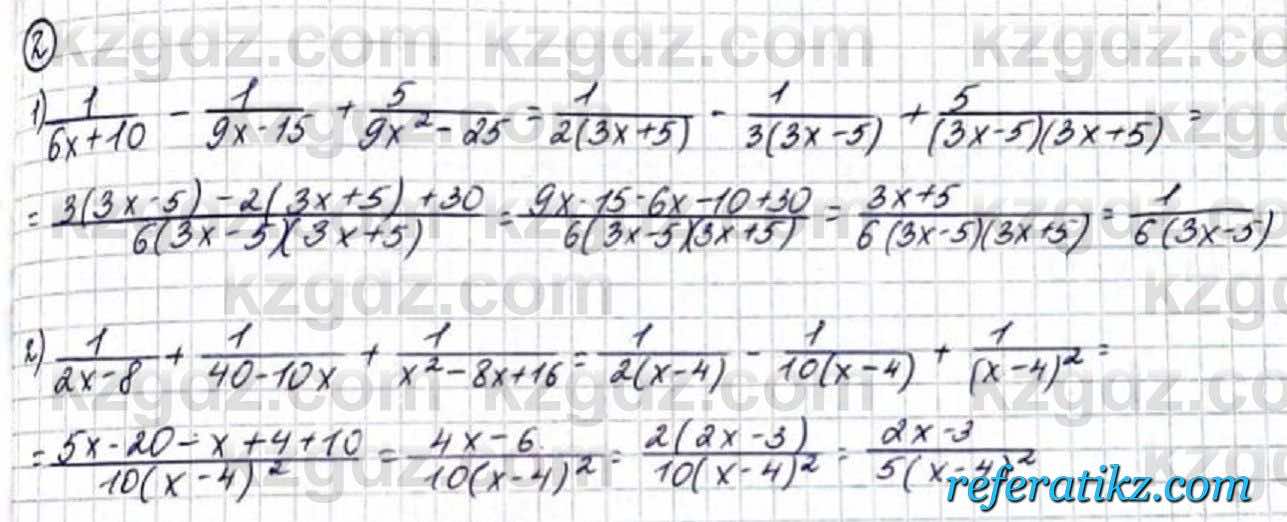 kzgdz.com kzgdz.com kzgdz.com
②
1) 1/(6x+10) - 1/(9x-15) + 5/(9x²-25) = 1/(2(3x+5)) - 1/(3(3x-5)) + 5/((3x-5)(3x+5)) =
= (3(3x-5)-2(3x+5)+30)/(6(3x-5)(3x+5)) = (9x-15-6x-10+30)/(6(3x-5)(3x+5)) = (3x+5)/(6(3x-5)(3x+5)) = 1/(6(3x-5))
kzgdz.com
2) 1/(2x-8) + 1/(40-10x) + 1/(x²-8x+16) = 1/(2(x-4)) - 1/(10(x-4)) + 1/(x-4)² =
= (5x-20-x+4+10)/(10(x-4)²) = (4x-6)/(10(x-4)²) = 2(2x-3)/(10(x-4)²) = (2x-3)/(5(x-4)²)
referatikz.com